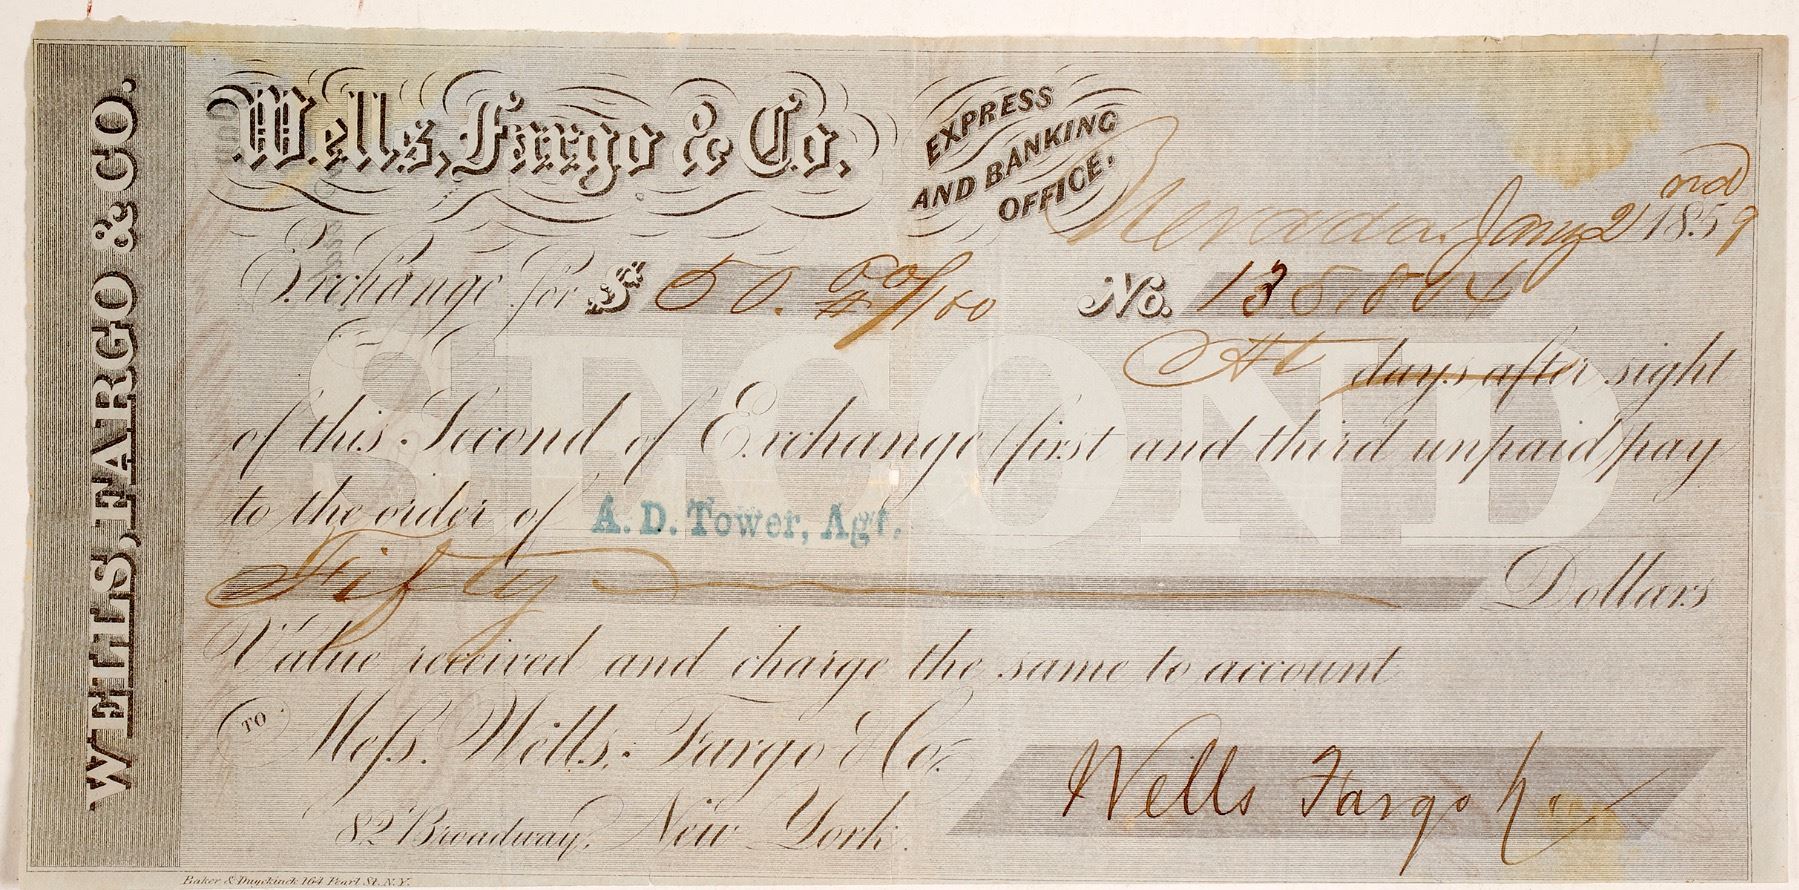 WELLS, FARGO & CO.
Wells, Fargo & Co.
EXPRESS
AND BANKING
OFFICE.
Nevada. Jany 2nd 1859
Exchange for $ 50. 00/100 No.
SECOND
At days after sight
of this Second of Exchange (first and third unpaid) pay
to the order of A. D. Tower, Agt.
Fifty Dollars
Value received and charge the same to account
TO Mess. Wells, Fargo & Co.
82 Broadway, New York.
Wells Fargo & Co
Baker & Duyckinck 164 Pearl St. N.Y.